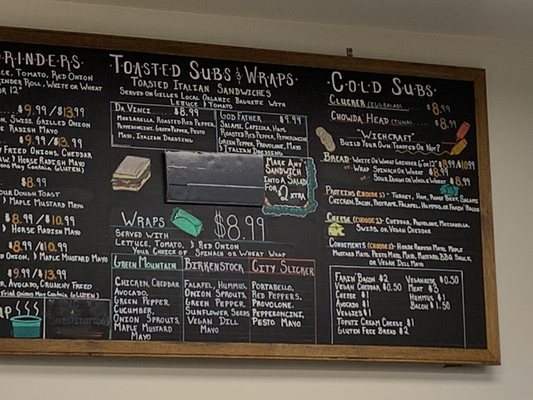 RINDERS
CE, TOMATO, RED ONION
INDER ROLL, WHITE OR
R 12"
$9.99/$13.99
SWISS, GRILLED ONION
E RADISH MAYO
$9.99/$13.99
ONIONS, CHEDDAR
HORSE RADISH MAYO
$8.99
DOUGH TOAST
MAPLE MUSTARD
$8.99/$10.99
HORSE RADISH MAYO
$8.99/$10.99
& MAPLE MUSTARD MAYO
$9.99/$13.99
FRIED ONIONS MAY CONTAIN
TOASTED SUBS & WRAPS
TOASTED ITALIAN SANDWICHES
SERVED ON GILLES LOCAL ORGANIC BAGUETTE WITH
LETTUCE & TOMATO
DA VINCI $8.99
MOZZARELLA, ROASTED RED PEPPER,
PEPPERONCINI, GREEN PEPPER, PESTO
MAYO, ITALIAN DRESSING
GOD FATHER $9.99
SALAMI, CAPICOLA, HAM,
ROASTED RED PEPPER, PEPPERONCINI
GREEN PEPPER, PROVOLONE,
ITALIAN DRESSING
MAKE ANY
SANDWICH
INTO A SALAD
FOR
2
XTRA
WRAPS $8.99
SERVED WITH
LETTUCE, TOMATO & RED ONION
YOUR CHOICE OF SPINACH OR WHEAT WRAP
GREEN MOUNTAIN
CHICKEN, CHEDDAR
AVOCADO,
GREEN PEPPER,
CUCUMBER,
ONION SPROUTS,
MAPLE MUSTARD
MAYO
BIRKENSTOCK
FALAFEL, HUMMUS,
ONION SPROUTS,
GREEN PEPPER,
SUNFLOWER SEEDS
VEGAN DILL
MAYO
CITY SLICKER
PORTABELLO,
RED PEPPERS,
PROVOLONE,
PEPPERONCINI,
PESTO MAYO
COLD SUBS
CLUCKER (EGG SALAD) $8.99
CHOWDA HEAD (TUNA) $8.99
"WICHCRAFT"
BUILD YOUR OWN TOASTED OR NOT
BREAD - WHITE OR WHEAT GRINDER 6" OR 12" $8.99/10.99
WRAP - SPINACH OR WHEAT $8.99
SOUR DOUGH OR WHOLE WHEAT $8.99
PROTEINS (CHOOSE 1) - TURKEY, HAM, ROAST BEEF, GRILLED
CHICKEN, BACON, FALAFEL, HUMMUS, OR FAKIN BACON
CHEESE (CHOOSE 1) - CHEDDAR, PROVOLONE, MOZZARELLA,
SWISS, OR VEGAN CHEDDAR
CONDIMENTS (CHOOSE 1) - HORSE RADISH MAYO, MAPLE
MUSTARD MAYO, PESTO MAYO, MAYO, MUSTARD, BBQ SAUCE,
OR VEGAN DILL MAYO
FAKIN' BACON $2
VEGAN CHEDDAR $0.50
CHEESE $1
AVOCADO $1
VEGGIES $1
TOFUTTI CREAM CHEESE $1
GLUTEN FREE BREAD $2
VEGENAISE $0.50
MEAT $3
HUMMUS $1
BACON $1.50